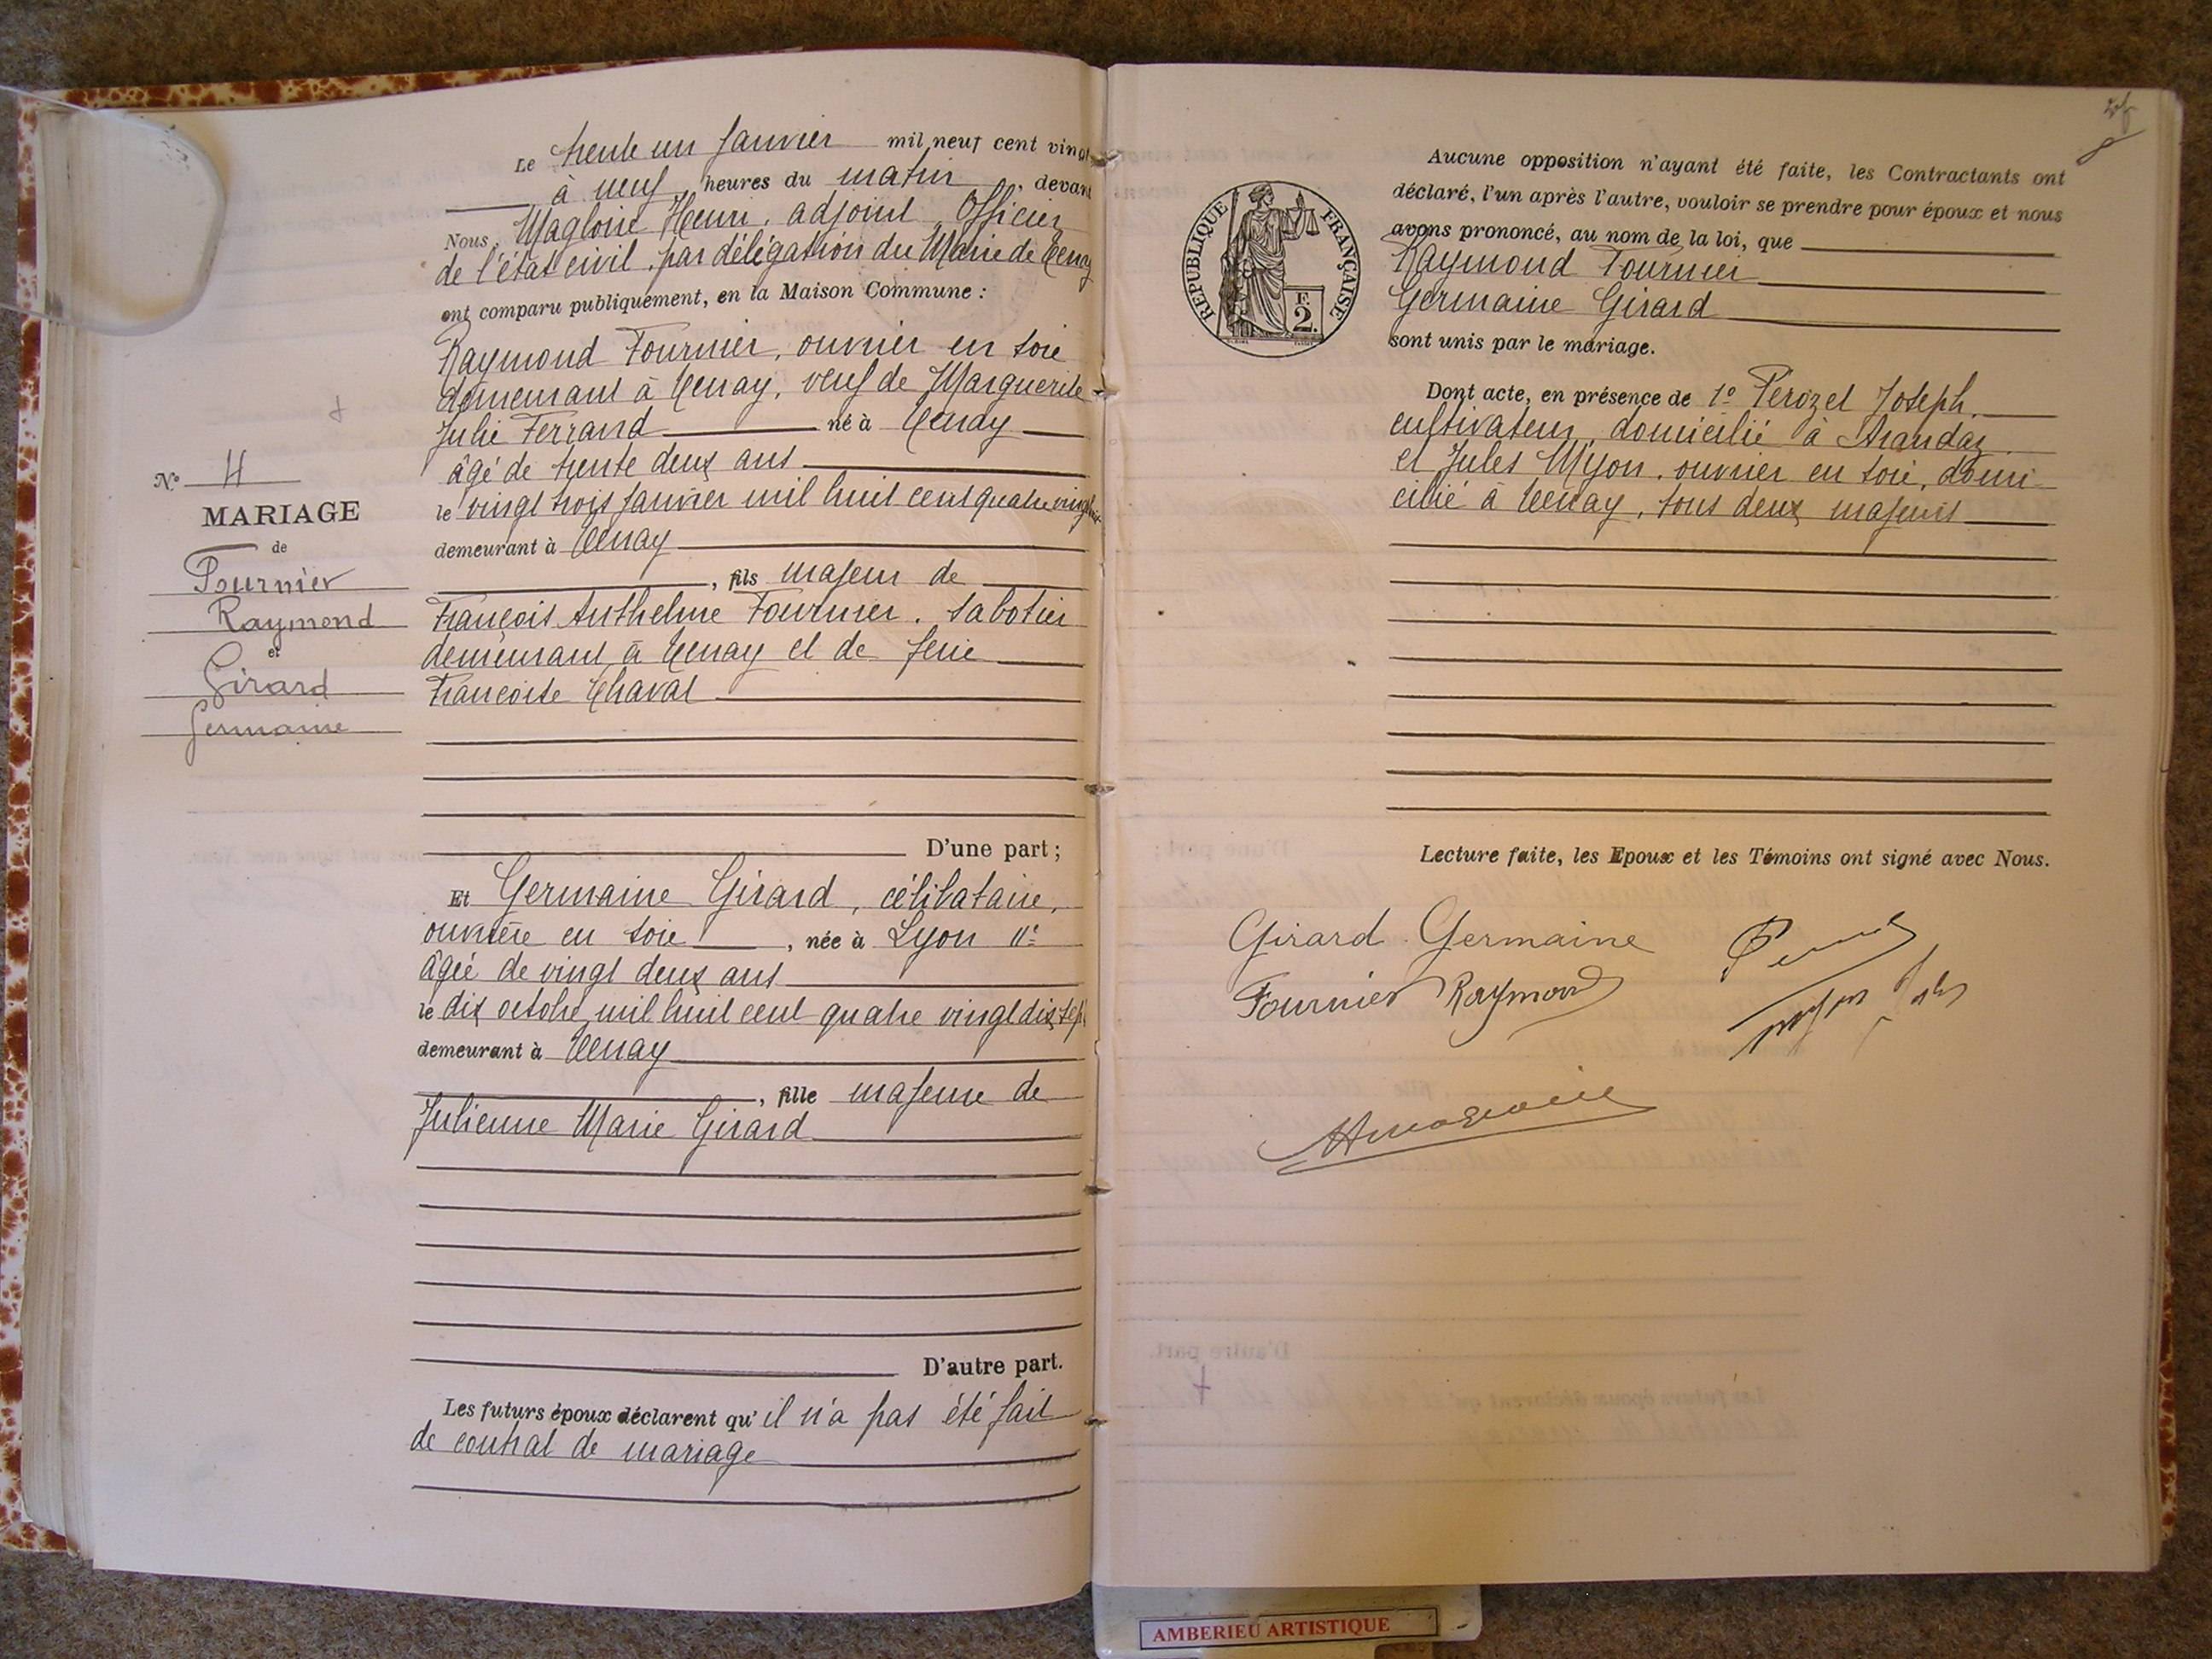 Le trente un Janvier mil neuf cent vingt
à neuf heures du matin, devant
Nous, Magloire Henri, adjoint Officier
de l'état civil, par délégation du Maire de Tenay
ont comparu publiquement, en la Maison Commune :
Raymond Fournier, ouvrier en soie
demeurant à Tenay, veuf de Marguerite
Julie Ferrand né à Tenay
âgé de trente deux ans
le vingt trois Janvier mil huit cent quatre vingt huit
demeurant à Tenay
, fils majeur de
François Anthelme Fournier, sabotier
demeurant à Tenay et de feue
Françoise Chaval
D'une part ;
N° 4
MARIAGE
de
Fournier
Raymond
et
Girard
Germaine
Et Germaine Girard, célibataire,
ouvrière en soie, née à Lyon
âgée de vingt deux ans
le dix octobre mil huit cent quatre vingt dix sept
demeurant à Tenay
, fille majeure de
Julienne Marie Girard
D'autre part.
Les futurs époux déclarent qu'il n'a pas été fait
de contrat de mariage
REPUBLIQUE FRANÇAISE
F.
2.
Aucune opposition n'ayant été faite, les Contractants ont
déclaré, l'un après l'autre, vouloir se prendre pour époux et nous
avons prononcé, au nom de la loi, que
Raymond Fournier
Germaine Girard
sont unis par le mariage.
Dont acte, en présence de 1° Perozet Joseph,
cultivateur, domicilié à Arandas
et Jules Myon, ouvrier en soie, domi
cilié à Tenay, tous deux majeurs
Lecture faite, les Epoux et les Témoins ont signé avec Nous.
Girard Germaine
Fournier Raymond
AMBERIEU ARTISTIQUE